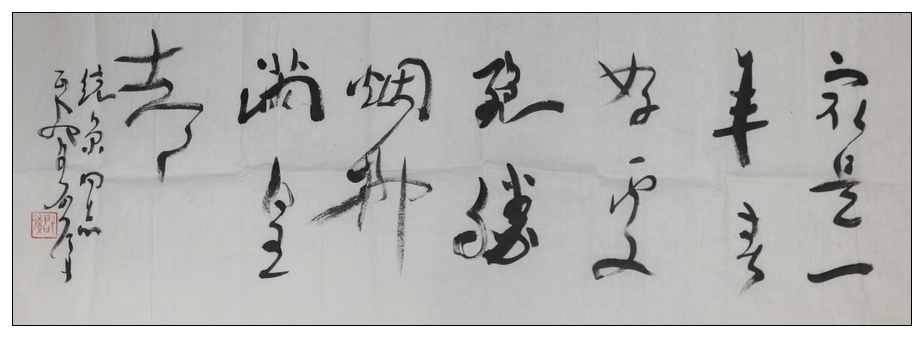 最是一
年春
好处
绝胜
烟柳
满皇
都